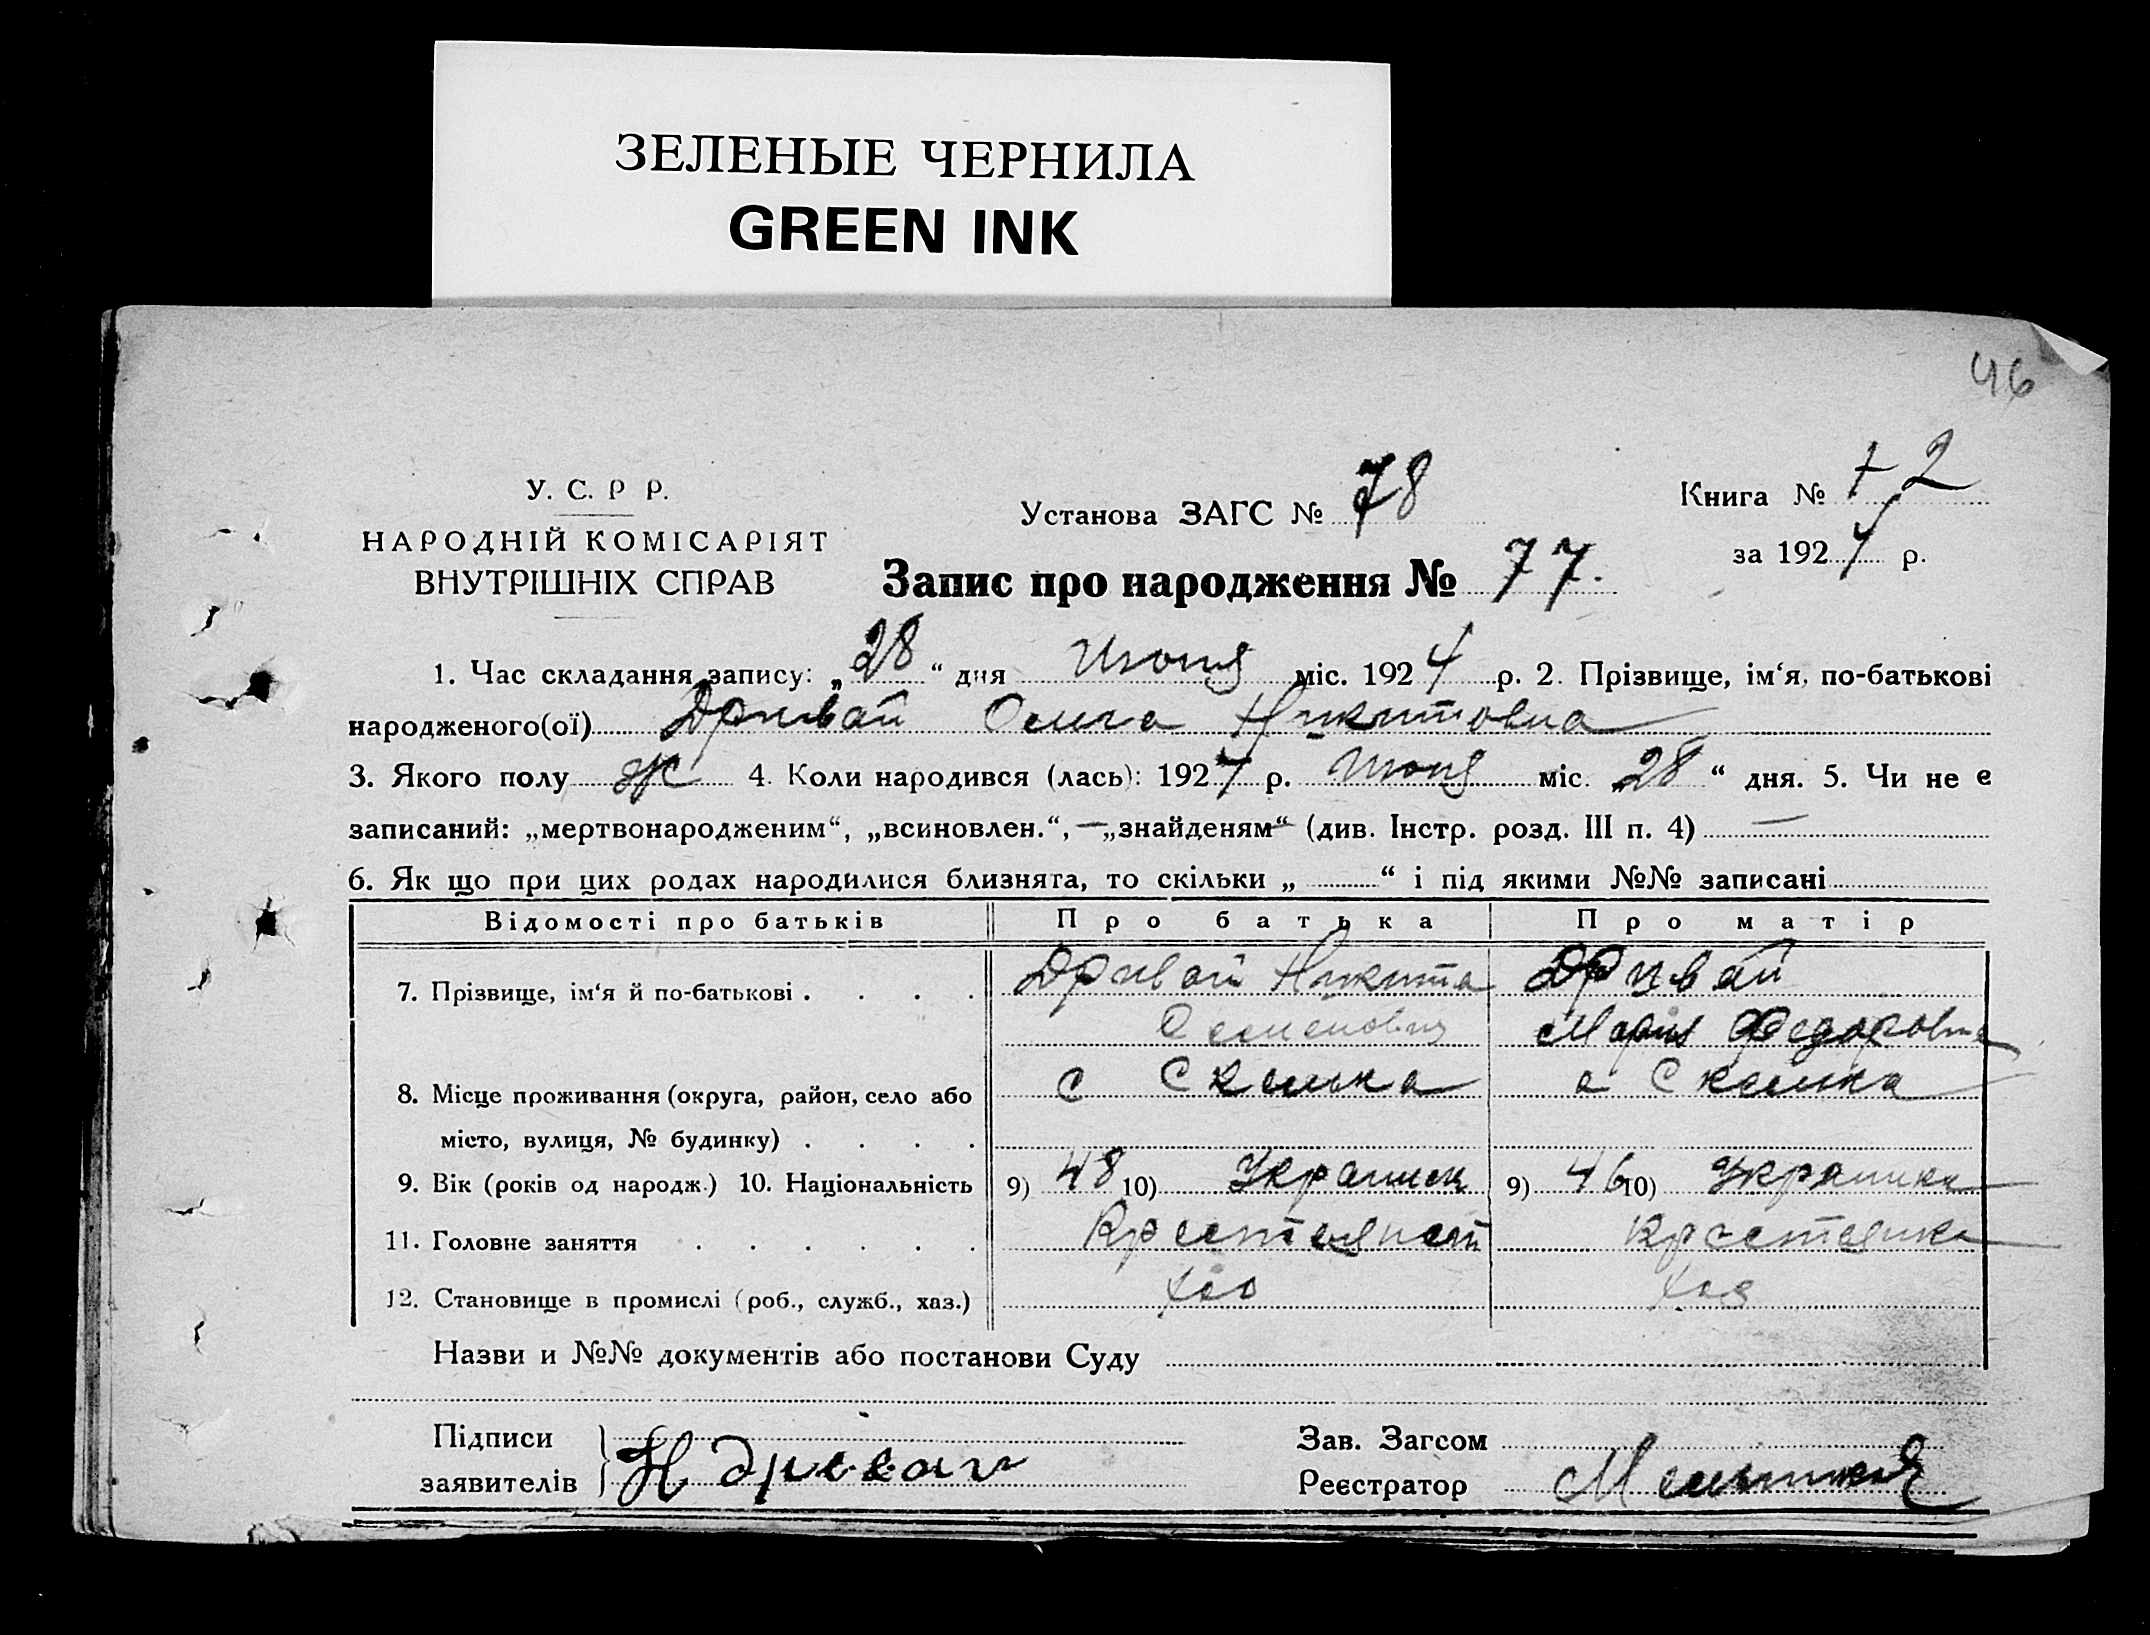 ЗЕЛЕНЫЕ ЧЕРНИЛА
GREEN INK
46
У. С. Р Р.
НАРОДНІЙ КОМІСАРІЯТ
ВНУТРІШНІХ СПРАВ
Установа ЗАГС № 78
Запис про народження № 77.
Книга № 2
за 1924 р.
1. Час складання запису: „28“ дня Июня міс. 1924 р. 2. Прізвище, ім‘я, по-батькові
народженого(ої) Дривай Ольга Никитовна
3. Якого полу ж 4. Коли народився (лась): 1924 р. Июня міс. „28“ дня. 5. Чи не є
записаний: „мертвонародженим“, „всиновлен.“, —„знайденям“ (див. Інстр. розд. III п. 4) —
6. Як що при цих родах народилися близнята, то скільки „ “ і під якими №№ записані
Відомості про батьків Про батька Про матір
7. Прізвище, ім‘я й по-батькові . . . . Дривай Никита Дривай
Семенович Мария Федоровна
8. Місце проживання (округа, район, село або с Скелька с Скелька
місто, вулиця, № будинку) . . . .
9. Вік (років од народж.) 10. Національність 9) 48 10) Украинец 9) 46 10) Украинка
11. Головне заняття . . . . . . Крестьянин Крестьянка
12. Становище в промислі (роб., служб., хаз.) Хоз Хоз
Назви и №№ документів або постанови Суду
Підписи
заявителів Н Дривай
Зав. Загсом
Реєстратор